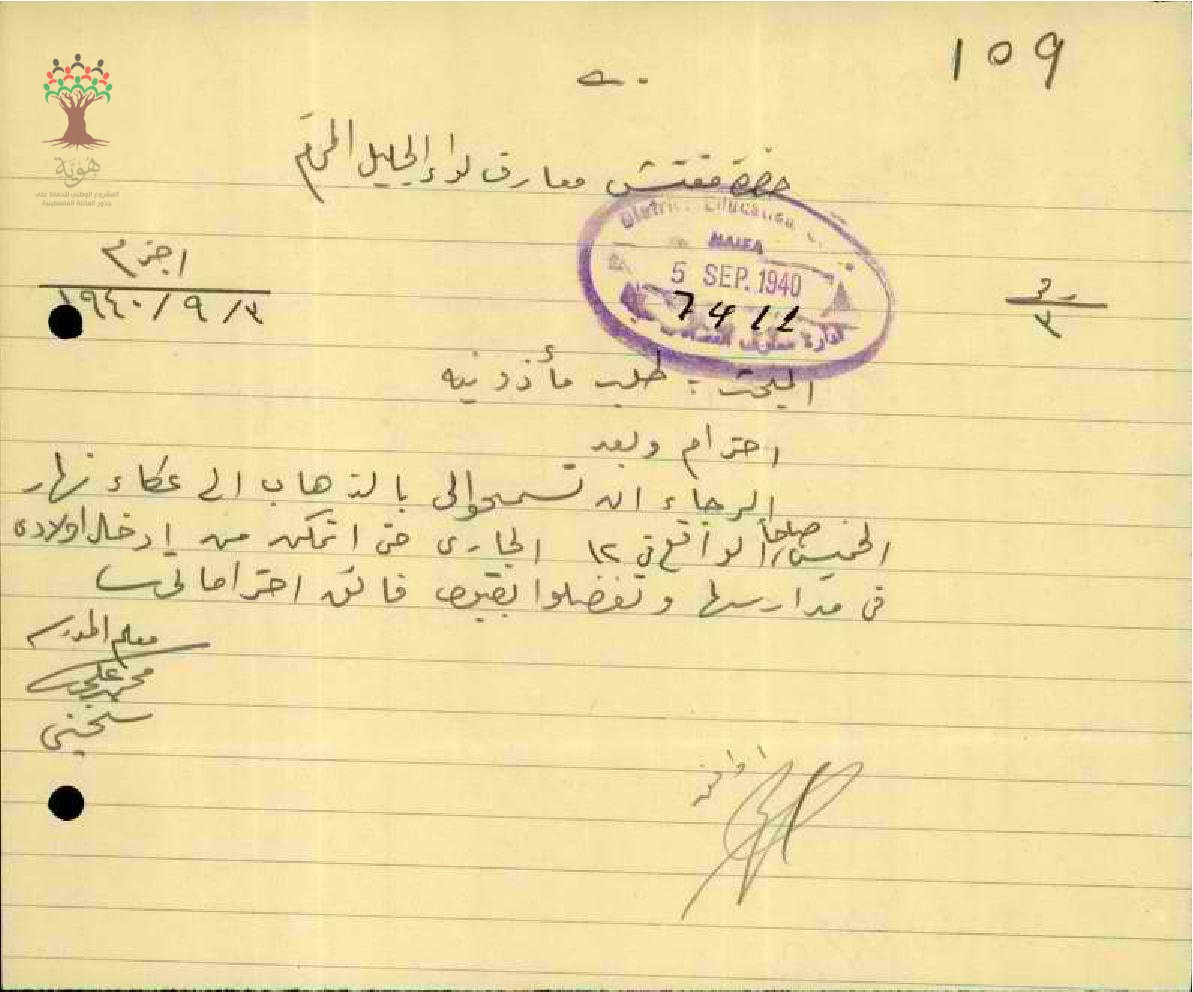 ١٥٩
هوية
المشروع الوطني للحفاظ على
جذور العائلة الفلسطينية
حضرة مفتش معارف لواء الجليل المحترم
District Education
HAIFA
5 SEP. 1940
7411
ادارة معارف
اجزم
٣/٩/١٩٤٠
٣
البحث : طلب مأذونيه
احترام وبعد
الرجاء ان تسمحوا لي بالذهاب الى عكاء نهار
الخميس صباحاً الواقع في ١٢ الجاري حتى اتمكن من ادخال اولادي
في مدارسها وتفضلوا بقبول فائق احتراماتي
معلم المدرسه
محمد علي
سخنيني